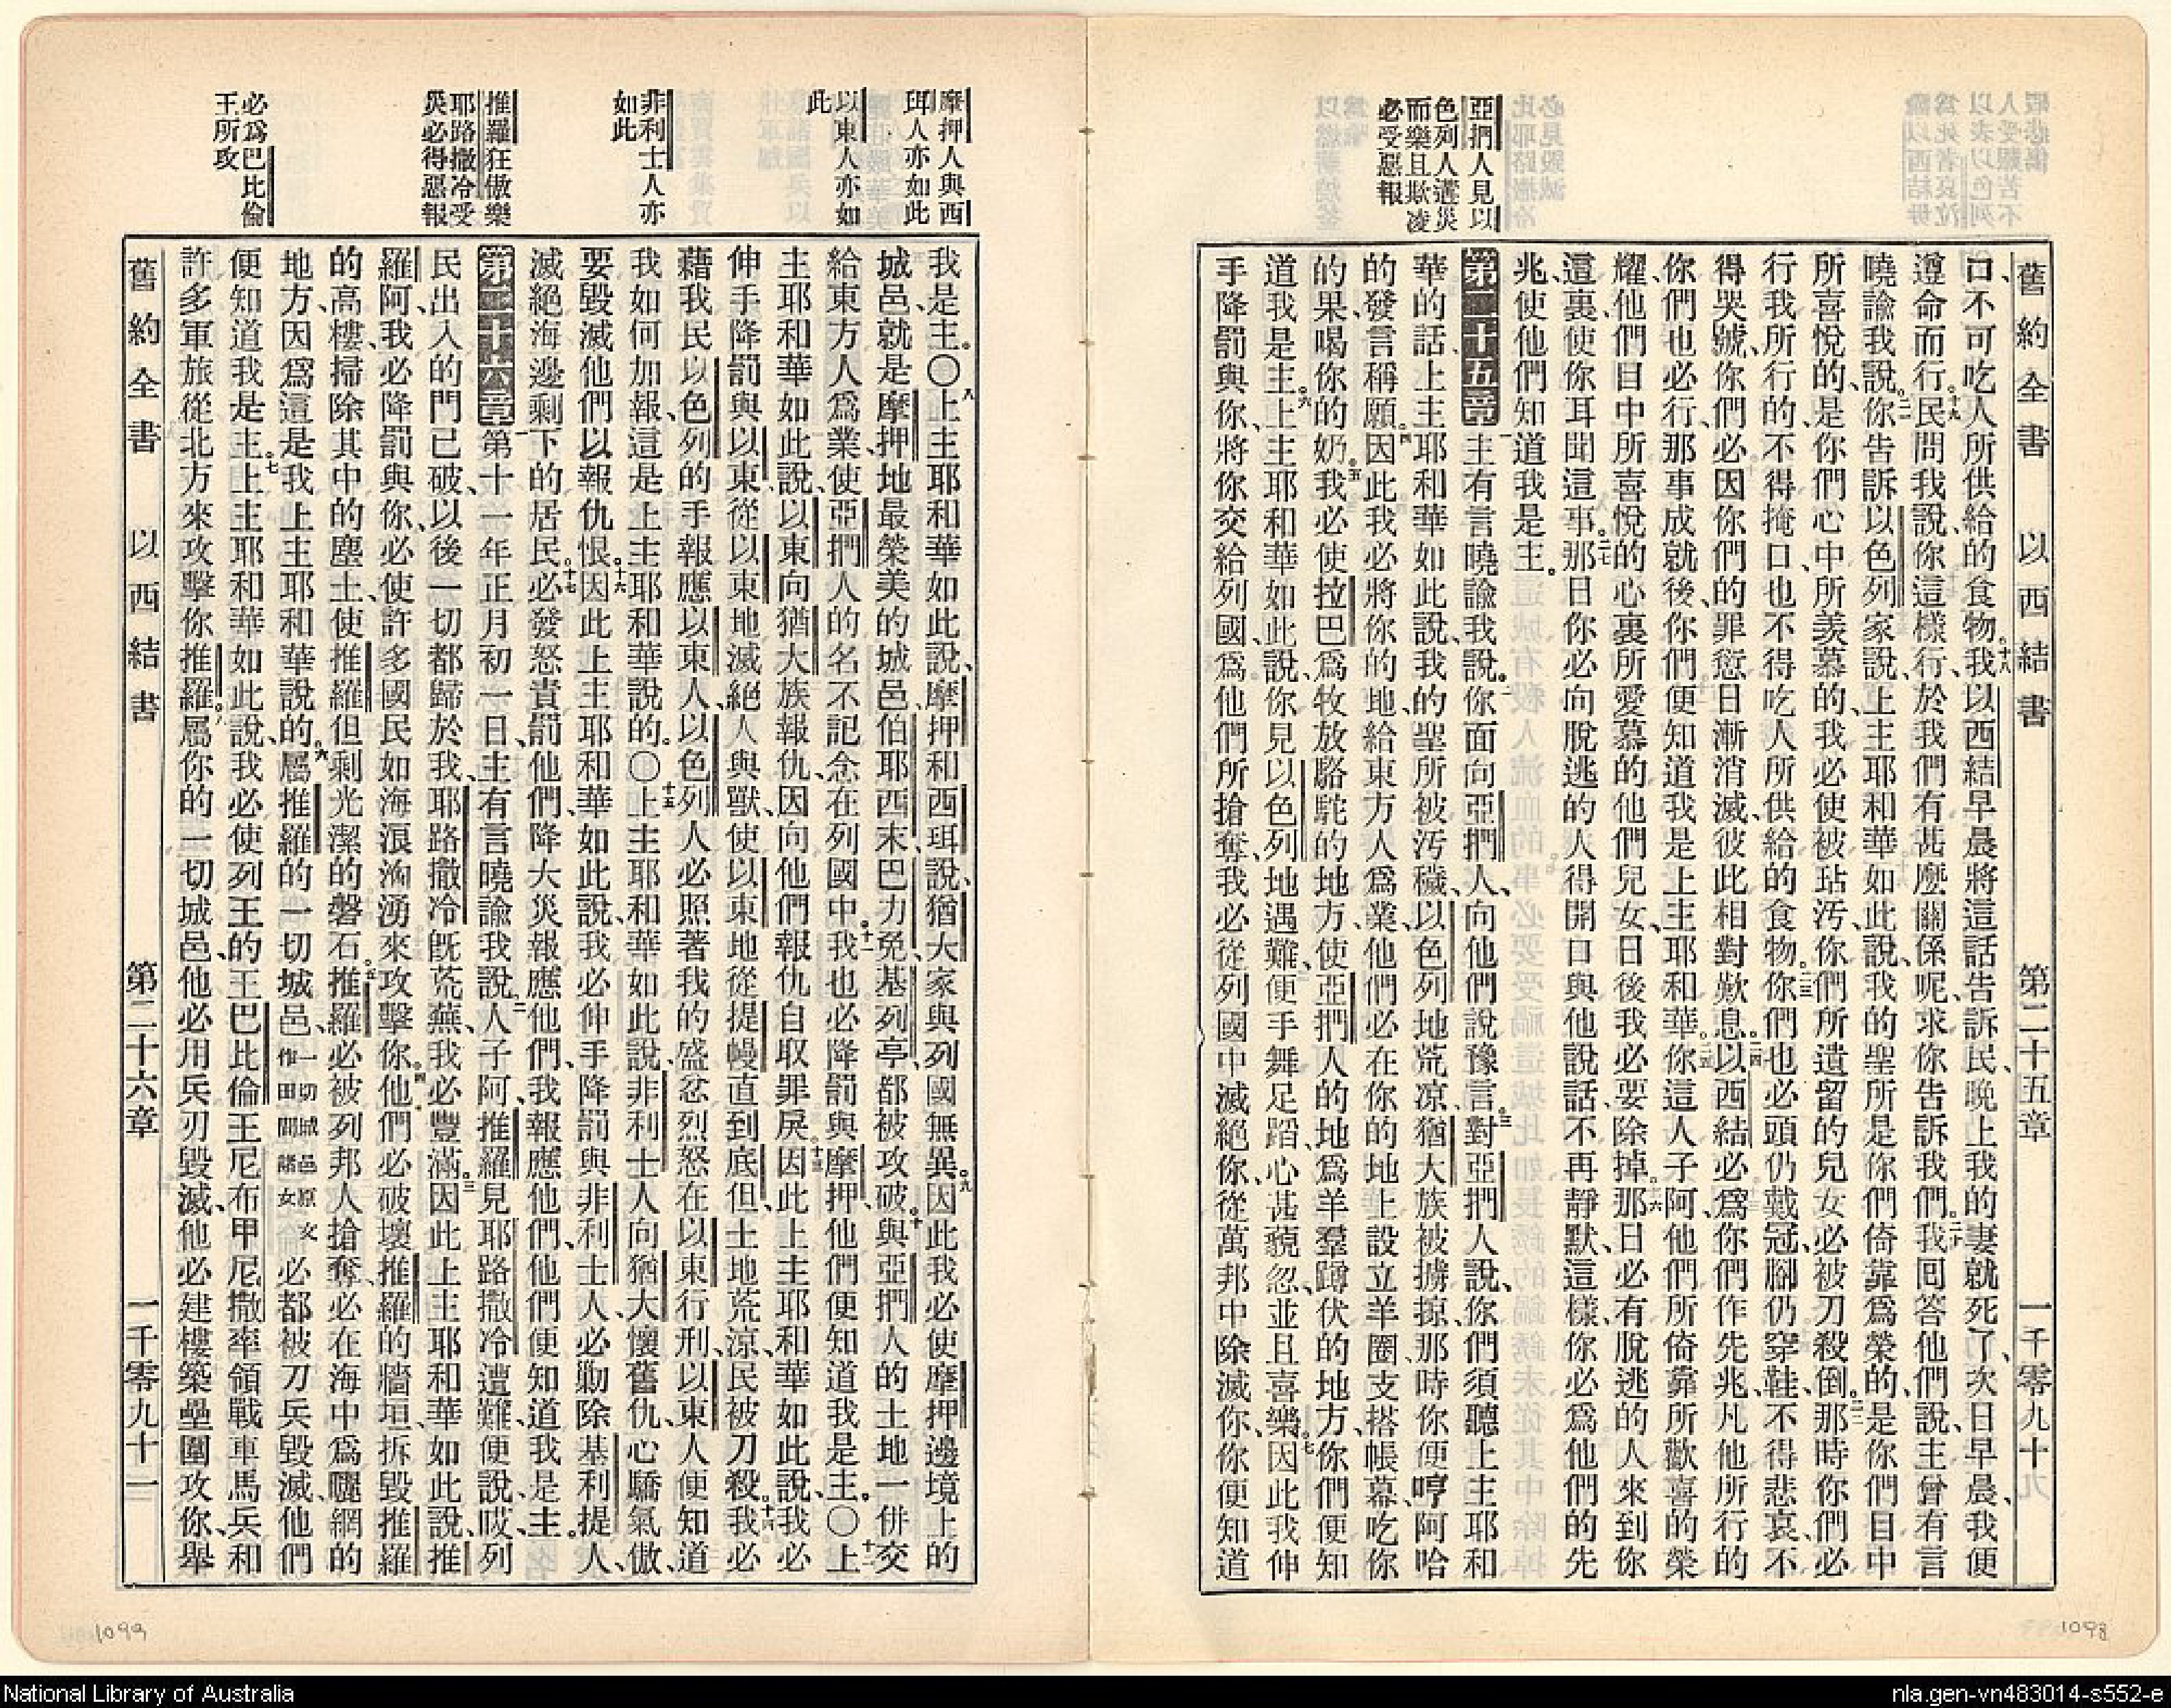 亞捫人見以
色列人遘災
而樂且欺凌
必受惡報
舊約全書 以西結書 第二十五章 一千零九十
口、不可吃人所供給的食物。十八我以西結早晨將這話告訴民、晚上我的妻就死了、次日早晨、我便
遵命而行。十九民問我說、你這樣行、於我們有甚麼關係呢、求你告訴我們。二十我回答他們說、主曾有言
曉諭我說、二一你告訴以色列家說、上主耶和華如此說、我的聖所是你們倚靠爲榮的、是你們目中
所喜悅的、是你們心中所羨慕的、我必使被玷汚、你們所遺留的兒女、必被刀殺倒。二二那時你們必
行我所行的、不得掩口、也不得吃人所供給的食物。二三你們也必頭仍戴冠、腳仍穿鞋、不得悲哀、不
得哭號、你們必因你們的罪愆日漸消滅、彼此相對歎息。二四以西結必爲你們作先兆、凡他所行的
你們也必行、那事成就後、你們便知道我是上主耶和華。二五你這人子阿、他們所倚靠所歡喜的榮
耀、他們目中所喜悅的、心裏所愛慕的、他們兒女、日後我必要除掉。二六那日必有脫逃的人來到你
這裏、使你耳聞這事。二七那日你必向脫逃的人得開口與他說話、不再靜默、這樣、你必爲他們的先
兆、使他們知道我是主。
第二十五章 一主有言曉諭我說。二你面向亞捫人、向他們說豫言。三對亞捫人說、你們須聽上主耶和
華的話、上主耶和華如此說、我的聖所被汚穢、以色列地荒涼、猶大族被擄掠、那時你便哼阿哈
的發言稱願。四因此我必將你的地給東方人爲業、他們必在你的地上設立羊圈、支搭帳幕、吃你
的果、喝你的奶。五我必使拉巴爲牧放駱駝的地方、使亞捫人的地爲羊羣蹲伏的地方、你們便知
道我是主。六上主耶和華如此說、你見以色列地遇難、便手舞足蹈、心甚藐忽、並且喜樂。七因此我伸
手降罰與你、將你交給列國、爲他們所搶奪、我必從列國中滅絕你、從萬邦中除滅你、你便知道
1098
摩押人與西
珥人亦如此
以東人亦如
此
非利士人亦
如此
推羅狂傲樂
耶路撒冷受
災必得惡報
必爲巴比倫
王所攻
我是主。〇八上主耶和華如此說、摩押和西珥說、猶大家與列國無異。九因此我必使摩押邊境上的
城邑、就是摩押地最榮美的城邑、伯耶西末、巴力免、基列亭、都被攻破。十與亞捫人的土地一併交
給東方人爲業、使亞捫人的名不記念在列國中。十一我也必降罰與摩押、他們便知道我是主。〇十二上
主耶和華如此說、以東向猶大族報仇、因向他們報仇自取罪戾。十三因此上主耶和華如此說、我必
伸手降罰與以東、從以東地滅絕人與獸、使以東地從提幔直到底但、土地荒涼、民被刀殺。十四我必
藉我民以色列的手報應以東人、以色列人必照著我的盛忿烈怒在以東行刑、以東人便知道
我如何加報、這是上主耶和華說的。〇十五上主耶和華如此說、非利士人向猶大懷舊仇、心驕氣傲、
要毀滅他們以報仇恨。十六因此上主耶和華如此說、我必伸手降罰與非利士人、必勦除基利提人、
滅絕海邊剩下的居民。十七必發怒責罰他們、降大災報應他們、我報應他們、他們便知道我是主。
第二十六章 一第十一年正月初一日、主有言曉諭我說、二人子阿、推羅見耶路撒冷遭難、便說、哎、列
民出入的門已破、以後一切都歸於我、耶路撒冷旣荒蕪、我必豐滿。三因此上主耶和華如此說、推
羅阿、我必降罰與你、必使許多國民如海浪洶湧來攻擊你。四他們必破壞推羅的牆垣、拆毀推羅
的高樓、掃除其中的塵土、使推羅但剩光潔的磐石。五推羅必被列邦人搶奪、必在海中爲曬網的
地方、因爲這是我上主耶和華說的。六屬推羅的一切城邑、一切城邑原文作田間諸女必都被刀兵毀滅、他們
便知道我是主。七上主耶和華如此說、我必使列王的王巴比倫王尼布甲尼撒率領戰車馬兵和
許多軍旅、從北方來攻擊你推羅。八屬你的一切城邑、他必用兵刃毀滅、他必建樓築壘圍攻你、舉
舊約全書 以西結書 第二十六章 一千零九十一
1099
National Library of Australia
nla.gen-vn483014-s552-e